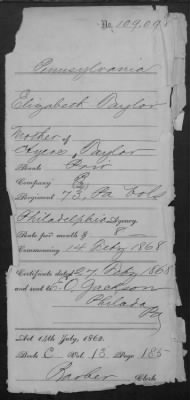 No. 109,098
Pennsylvania
Elizabeth Naylor
Mother of
Naylor
Rank Priv
Company
Regiment 73, Pa Vols
Philadelphia Agency
Rate per month $ 8
Commencing 14 Feby 1868
Certificate dated 27 Feby 1868
and sent to E. O. Jackson
Philada
Pa
Act 14th July, 1862.
Book C Vol. 13 Page 185
Barber Clerk